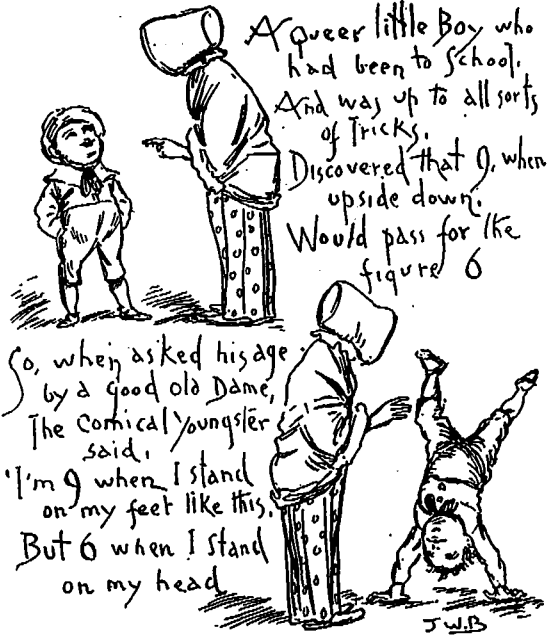 A queer little Boy who
had been to School,
And was up to all sorts
of Tricks,
Discovered that 9, when
upside down,
Would pass for the
figure 6
So, when asked his age
by a good old Dame,
The comical youngster
said,
'I'm 9 when I stand
on my feet like this,
But 6 when I stand
on my head
J.W.B